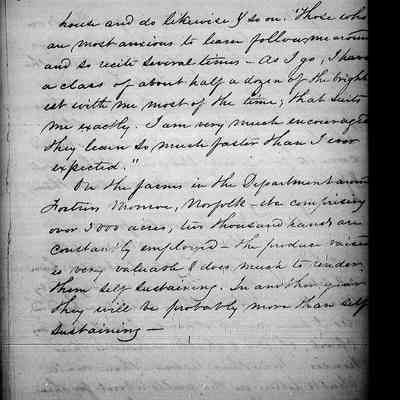 house and do likewise & so on. "Those who
are most anxious to learn follow me around
and so recite several times – As I go, I have
a class of about half a dozen of the bright
est with me most of the time; that suits
me exactly. I am very much encouraged
they learn so much faster than I ever
expected."
On the farms in the Department around
Fortress Monroe, Norfolk – etc comprising
over 5000 acres, two thousand hands are
constantly employed – the produce raised
is very valuable & does much to render
them self sustaining. In another year
they will be probably more than self
sustaining —